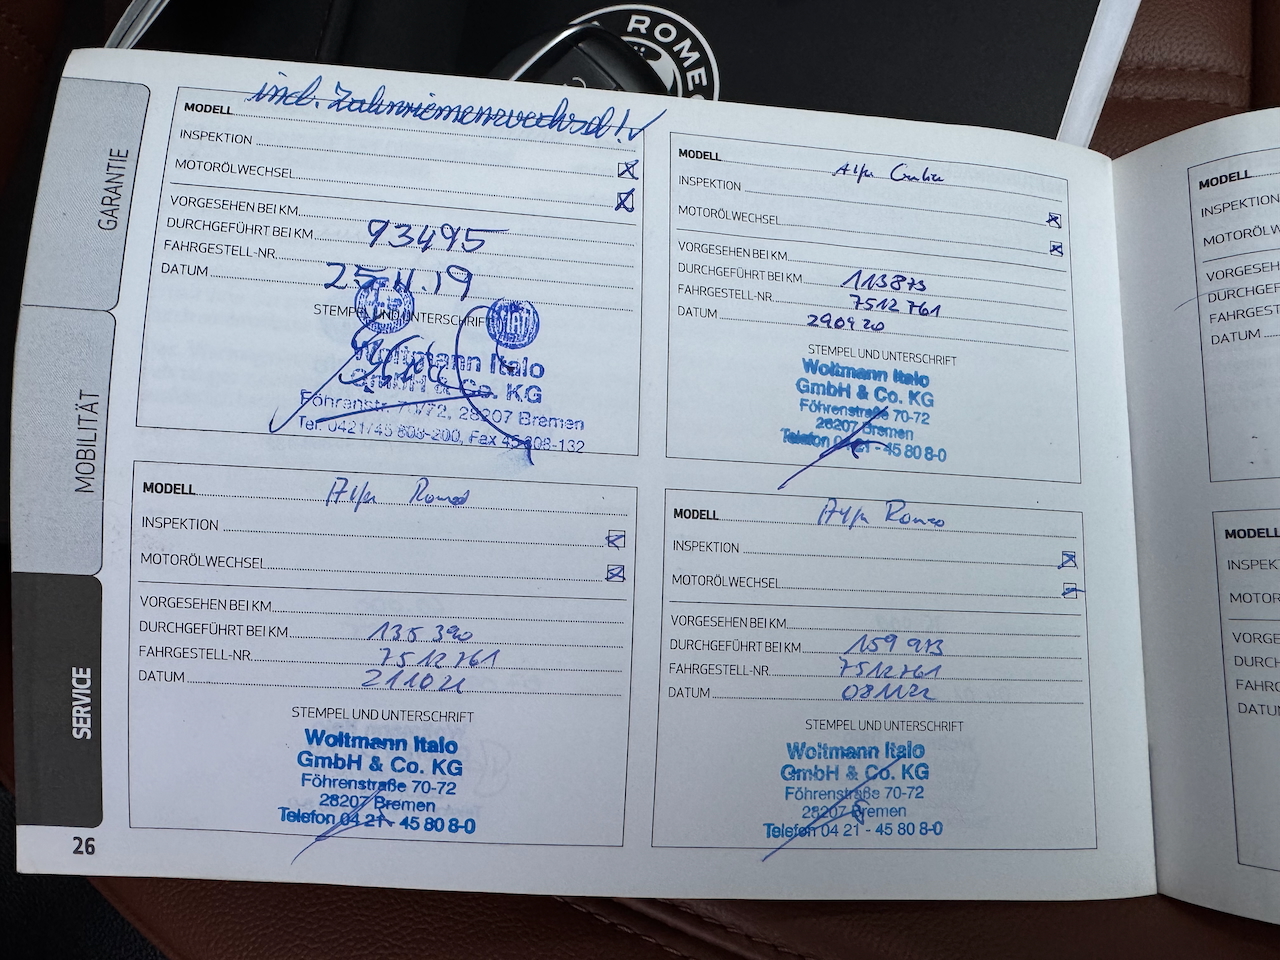 ROMEO
GARANTIE
MOBILITÄT
SERVICE
26
incl. Zahnriemenwechsel !
MODELL
INSPEKTION
MOTORÖLWECHSEL
VORGESEHEN BEI KM
DURCHGEFÜHRT BEI KM 93495
FAHRGESTELL-NR.
DATUM 25.11.19
STEMPEL UND UNTERSCHRIFT
FIAT
Woltmann Italo
GmbH & Co. KG
Föhrenstr. 70/72, 28207 Bremen
Tel. 0421/45 808-200, Fax 45 808-132
MODELL Alfa
INSPEKTION
MOTORÖLWECHSEL
VORGESEHEN BEI KM
DURCHGEFÜHRT BEI KM 113873
FAHRGESTELL-NR. 7512761
DATUM 290920
STEMPEL UND UNTERSCHRIFT
Woltmann Italo
GmbH & Co. KG
Föhrenstraße 70-72
28207 Bremen
Telefon 04 21 - 45 80 8-0
MODELL Alfa Romeo
INSPEKTION
MOTORÖLWECHSEL
VORGESEHEN BEI KM
DURCHGEFÜHRT BEI KM 135 390
FAHRGESTELL-NR. 7512761
DATUM 211021
STEMPEL UND UNTERSCHRIFT
Woltmann Italo
GmbH & Co. KG
Föhrenstraße 70-72
28207 Bremen
Telefon 04 21 - 45 80 8-0
MODELL Alfa Romeo
INSPEKTION
MOTORÖLWECHSEL
VORGESEHEN BEI KM
DURCHGEFÜHRT BEI KM 159 973
FAHRGESTELL-NR. 7512761
DATUM 081122
STEMPEL UND UNTERSCHRIFT
Woltmann Italo
GmbH & Co. KG
Föhrenstraße 70-72
28207 Bremen
Telefon 04 21 - 45 80 8-0
MODELL
INSPEKTION
MOTORÖLWE
VORGESEH
DURCHGEF
FAHRGEST
DATUM
MODELL
INSPEK
MOTOR
VORGE
DURCH
FAHRG
DATU